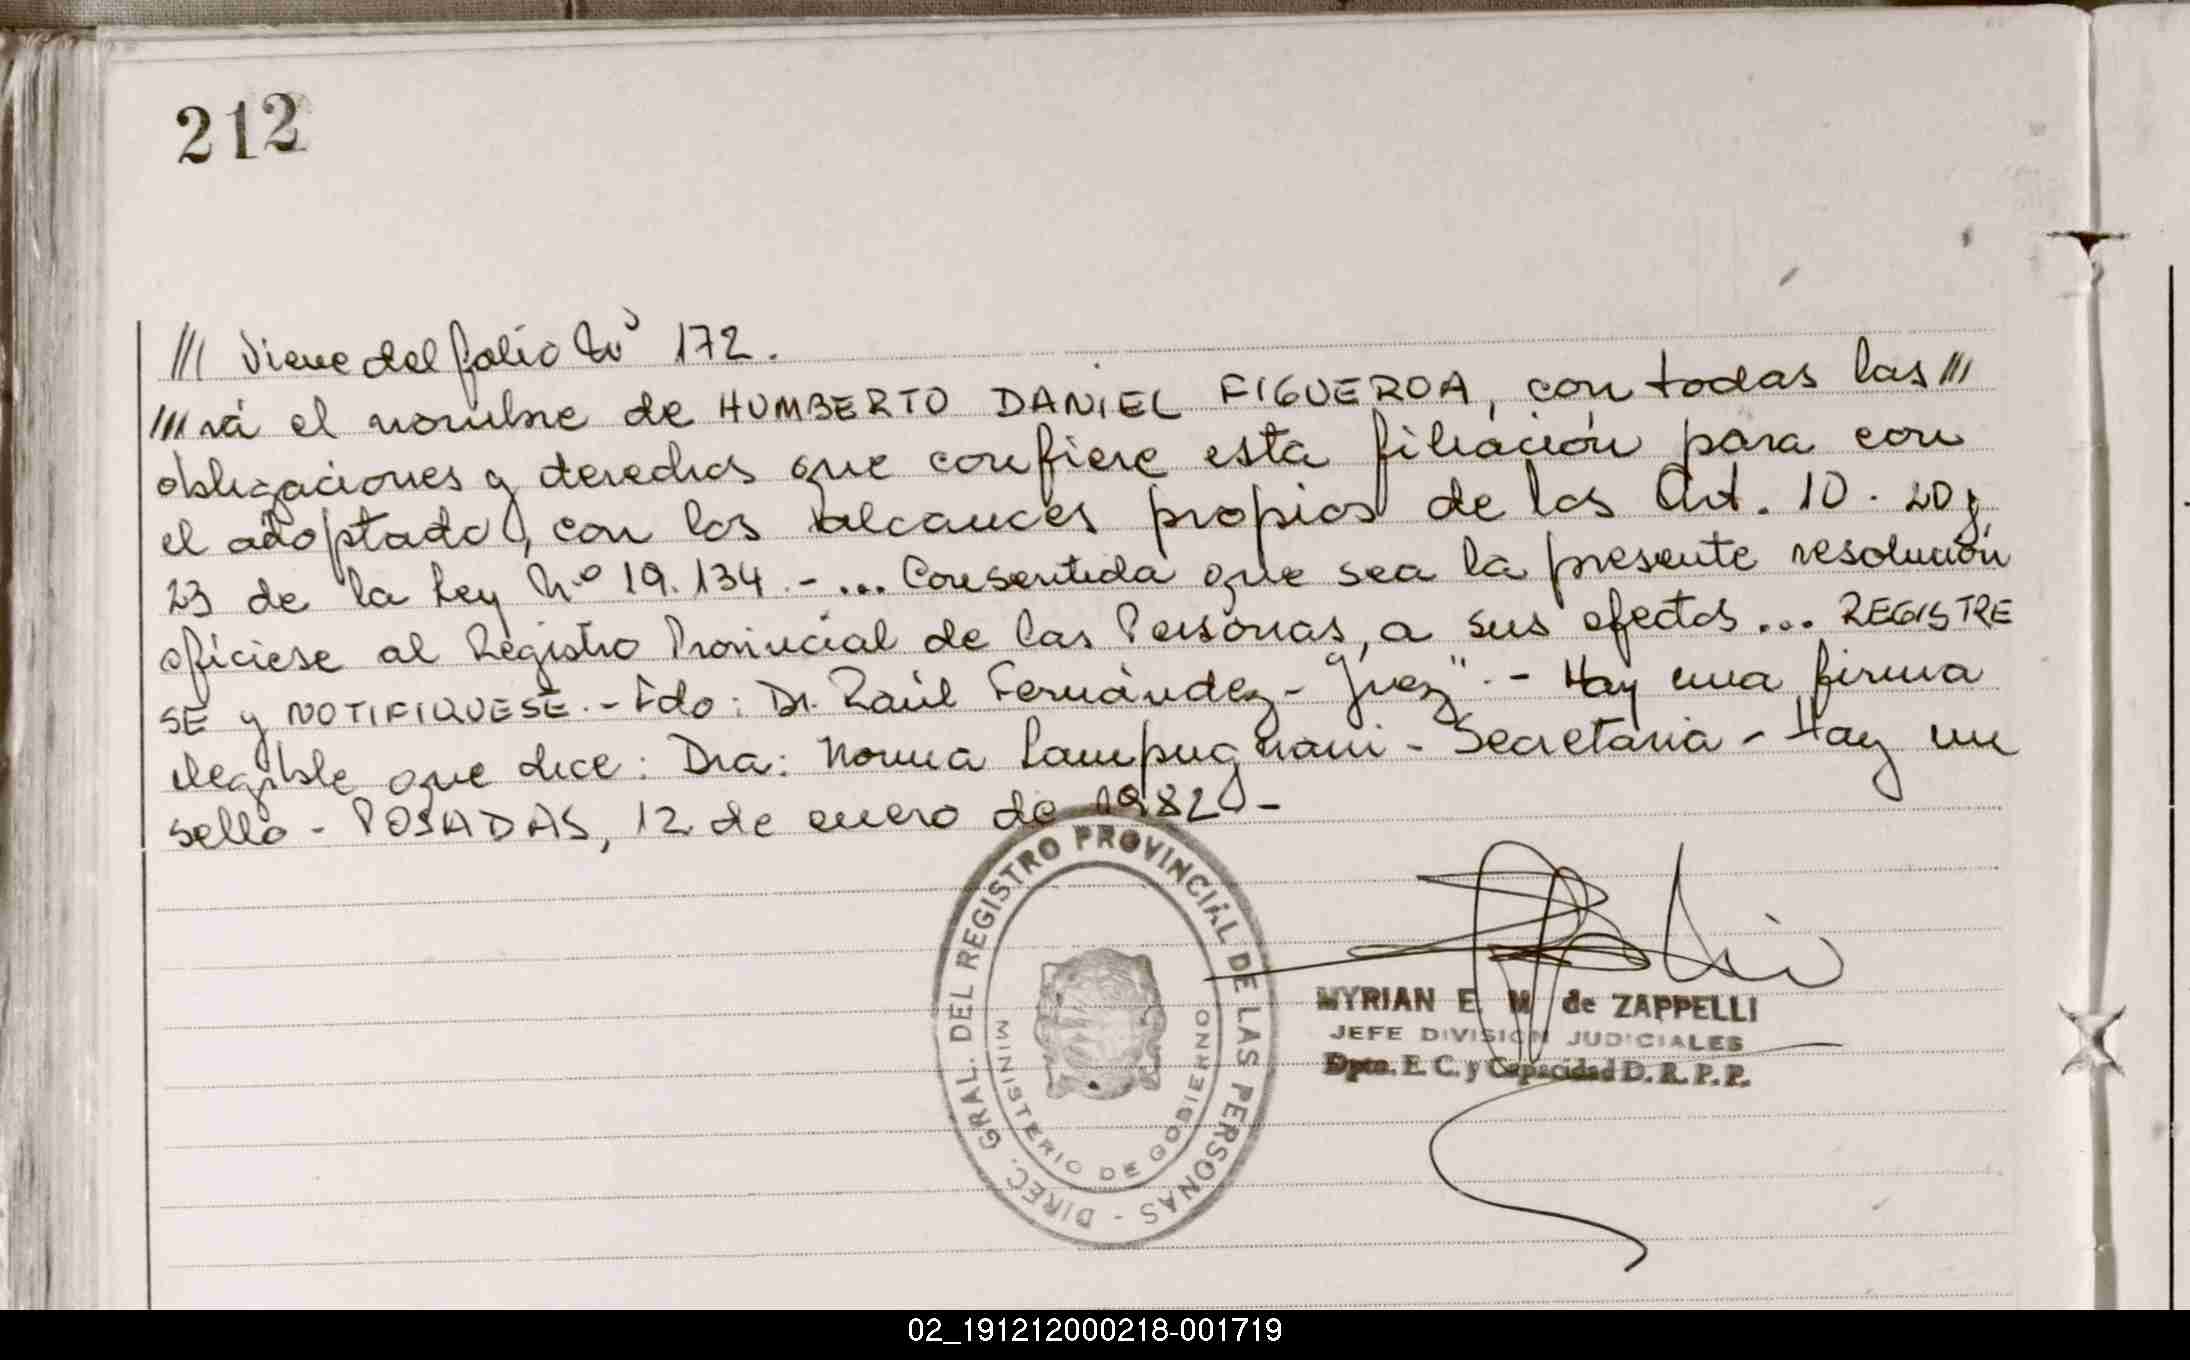 212
/// Viene del folio Nº 172.
///rá el nombre de HUMBERTO DANIEL FIGUEROA, con todas las ///
obligaciones y derechos que confiere esta filiación para con
el adoptado, con los alcances propios de los Art. 10. 20 y
23 de la Ley Nº 19.134.-... Consentida que sea la presente resolución
ofíciese al Registro Provincial de las Personas, a sus efectos... REGISTRE
SE y NOTIFIQUESE.- Fdo: Dr. Raúl Fernández - Juez".- Hay una firma
ilegible que dice: Dra: Norma Lampugnani - Secretaria - Hay un
sello - POSADAS, 12 de enero de 1982 -
DIREC. GRAL. DEL REGISTRO PROVINCIAL DE LAS PERSONAS -
MINISTERIO DE GOBIERNO
MYRIAN E. M de ZAPPELLI
JEFE DIVISION JUDICIALES
Dpto. E. C. y Capacidad D. R. P. P.
02_191212000218-001719